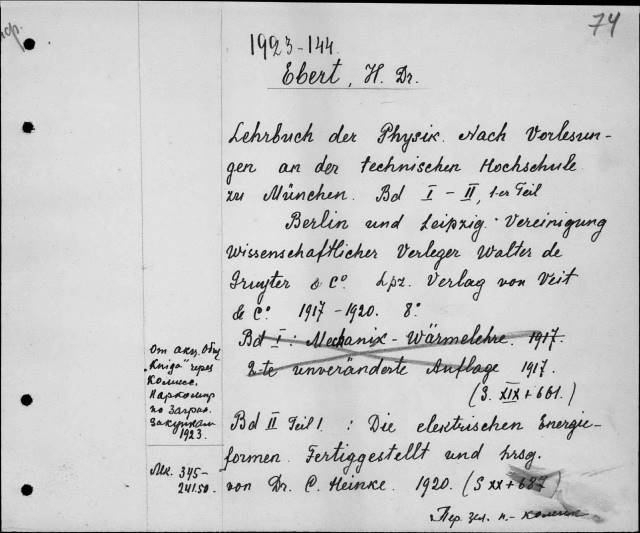 74
1923-144.
Ebert, H. Dr.
Lehrbuch der Physik. Nach Vorlesun-
gen an der technischen Hochschule
zu München. Bd I - II, 1-er Teil
Berlin und Leipzig. Vereinigung
Wissenschaftlicher Verleger Walter de
Gruyter & Co. Lpz. Verlag von Veit
& Co. 1917 - 1920. 8°.
Bd I: Mechanix - Wärmelehre. 1917.
2-te unveränderte Auflage 1917.
(S. XIX + 661.)
Bd II Teil 1 : Die elektrischen Energie-
formen. Fertiggestellt und hrsg.
von Dr. C. Heinke. 1920. (S XX + 687)
Пер. зел. п.-
От акц. Общ
"Книга" через
Комисс.
Наркомпр
по Загран.
закупкам
1923.
Мк. 345-
241.50.